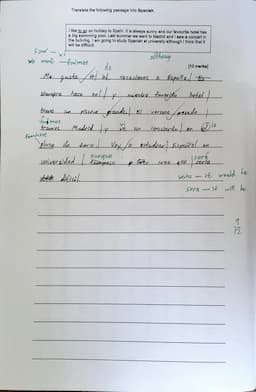 Translate the following passage into Spanish.
I like to go on holiday to Spain. It is always sunny and our favourite hotel has
a big swimming pool. Last summer we went to Madrid and I saw a concert in
the bullring. I am going to study Spanish at university although I think that it
will be difficult.
(10 marks)
saw - vi
although
we went - fuimos
de
Me gusta ir vacaciones a España
siempre hace sol y nuestro favorito hotel
tiene piscina grande. El verano pasado
fuimos
Madrid y vi un concierto en
plaza de toros. Voy a estudiar Español en
universidad aunque creo que será
sería
difícil
sería - it would be
será - it will be
9
12